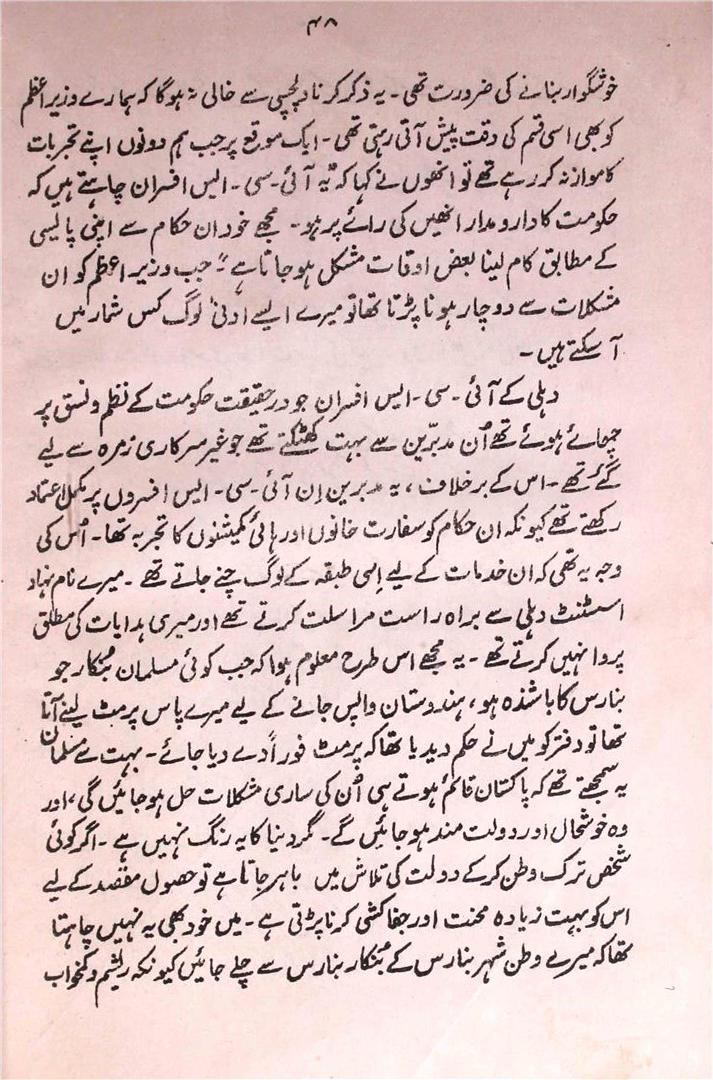 ۴۸
خوشگوار بنانے کی ضرورت تھی ۔ یہ ذکر کرنا دلچسپی سے خالی نہ ہوگا کہ ہمارے وزیر اعظم
کو بھی اسی قسم کی دقت پیش آتی رہتی تھی ۔ ایک موقع پر جب ہم دونوں اپنے تجربات
کا موازنہ کر رہے تھے تو انھوں نے کہا کہ "یہ آئی ۔ سی ۔ ایس افسران چاہتے ہیں کہ
حکومت کا دار و مدار انھیں کی رائے پر ہو ۔ مجھے خود ان حکام سے اپنی پالیسی
کے مطابق کام لینا بعض اوقات مشکل ہو جاتا ہے" ۔ جب وزیر اعظم کو ان
مشکلات سے دوچار ہونا پڑتا تھا تو میرے ایسے ادنیٰ لوگ کس شمار میں
آ سکتے ہیں ۔
دہلی کے آئی ۔ سی ۔ ایس افسران جو در حقیقت حکومت کے نظم و نسق پر
چھائے ہوئے تھے اُن مدبّرین سے بہت کھٹکتے تھے جو غیر سرکاری زمرہ سے لیے
گئے تھے ۔ اس کے برخلاف ، یہ مدبرین اِن آئی ۔ سی ۔ ایس افسروں پر مکمل اعتماد
رکھتے تھے کیونکہ ان حکام کو سفارت خانوں اور ہائی کمیشنوں کا تجربہ تھا ۔ اُس کی
وجہ یہ تھی کہ ان خدمات کے لیے اِسی طبقہ کے لوگ چنے جاتے تھے ۔ میرے نام نہاد
اسسٹنٹ دہلی سے براہ راست مراسلت کرتے تھے اور میری ہدایات کی مطلق
پروا نہیں کرتے تھے ۔ یہ مجھے اس طرح معلوم ہوا کہ جب کوئی مسلمان بُنکار جو
بنارس کا باشندہ ہو ، ہندوستان واپس جانے کے لیے میرے پاس پرمٹ لینے آتا
تھا تو دفتر کو میں نے حکم دیدیا تھا کہ پرمٹ فوراً دے دیا جائے ۔ بہت سے مسلمان
یہ سمجھتے تھے کہ پاکستان قائم ہوتے ہی اُن کی ساری مشکلات حل ہو جائیں گی ، اور
وہ خوشحال اور دولت مند ہو جائیں گے ۔ مگر دنیا کا یہ رنگ نہیں ہے ۔ اگر کوئی
شخص ترک وطن کرکے دولت کی تلاش میں باہر جاتا ہے تو حصول مقصد کے لیے
اس کو بہت زیادہ محنت اور جفاکشی کرنا پڑتی ہے ۔ میں خود بھی یہ نہیں چاہتا
تھا کہ میرے وطن شہر بنارس کے بُنکار بنارس سے چلے جائیں کیونکہ ریشم و کمخواب